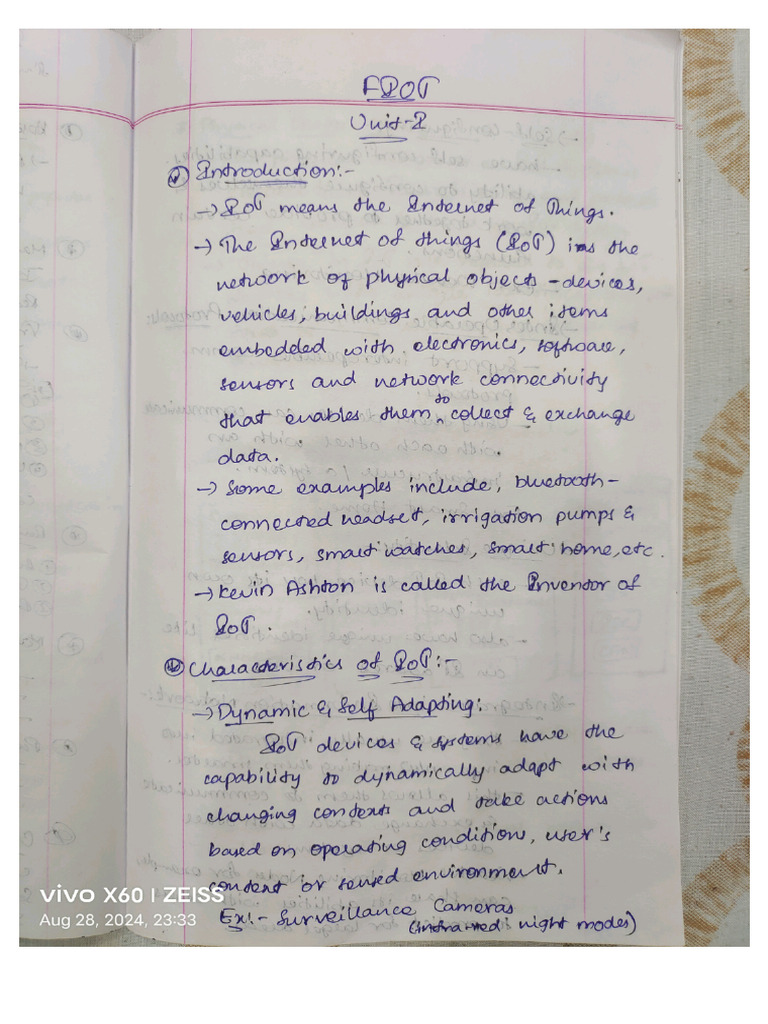 FIOT
Unit-I
Introduction:-
→ IOT means the Internet of Things.
→ The Internet of things (IoT) is the
network of physical objects - devices,
vehicles, buildings and other items
embedded with electronics, software,
sensors and network connectivity
that enables them to collect & exchange
data.
→ Some examples include, bluetooth-
connected headset, irrigation pumps &
sensors, smart watches, smart home, etc.
→ Kevin Ashton is called the Inventor of
IoT.
Characteristics of IoT:-
→ Dynamic & Self Adapting:
IoT devices & systems have the
capability to dynamically adapt with
changing contexts and take actions
based on operating condition, user's
content or sensed environment.
Ex:- Surveillance Cameras
(infra-red night modes)
vivo X60 | ZEISS
Aug 28, 2024, 23:33